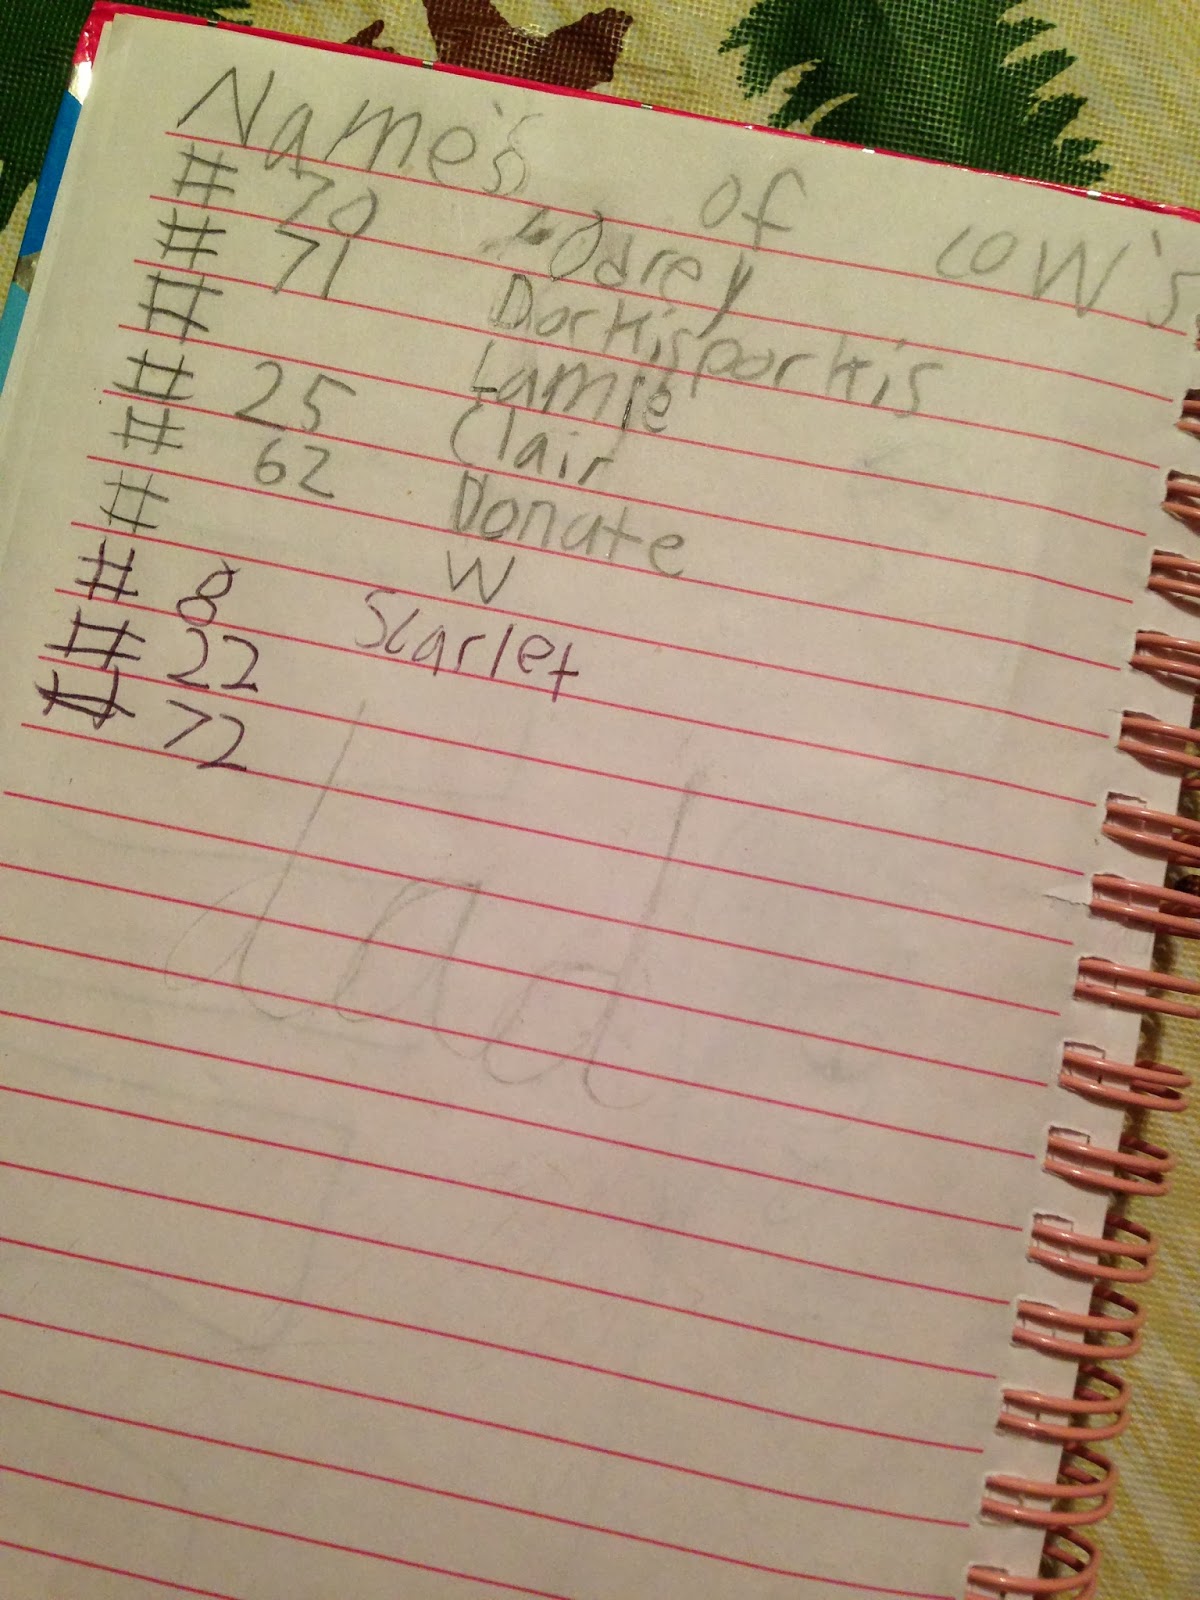 Name's of cow's.
# 70 Odrey
# 71 Dorkisporkis
# Lamie
# 25 Clair
# 62 Donate
# W
# 8 Scarlet
# 22
# 72
dad